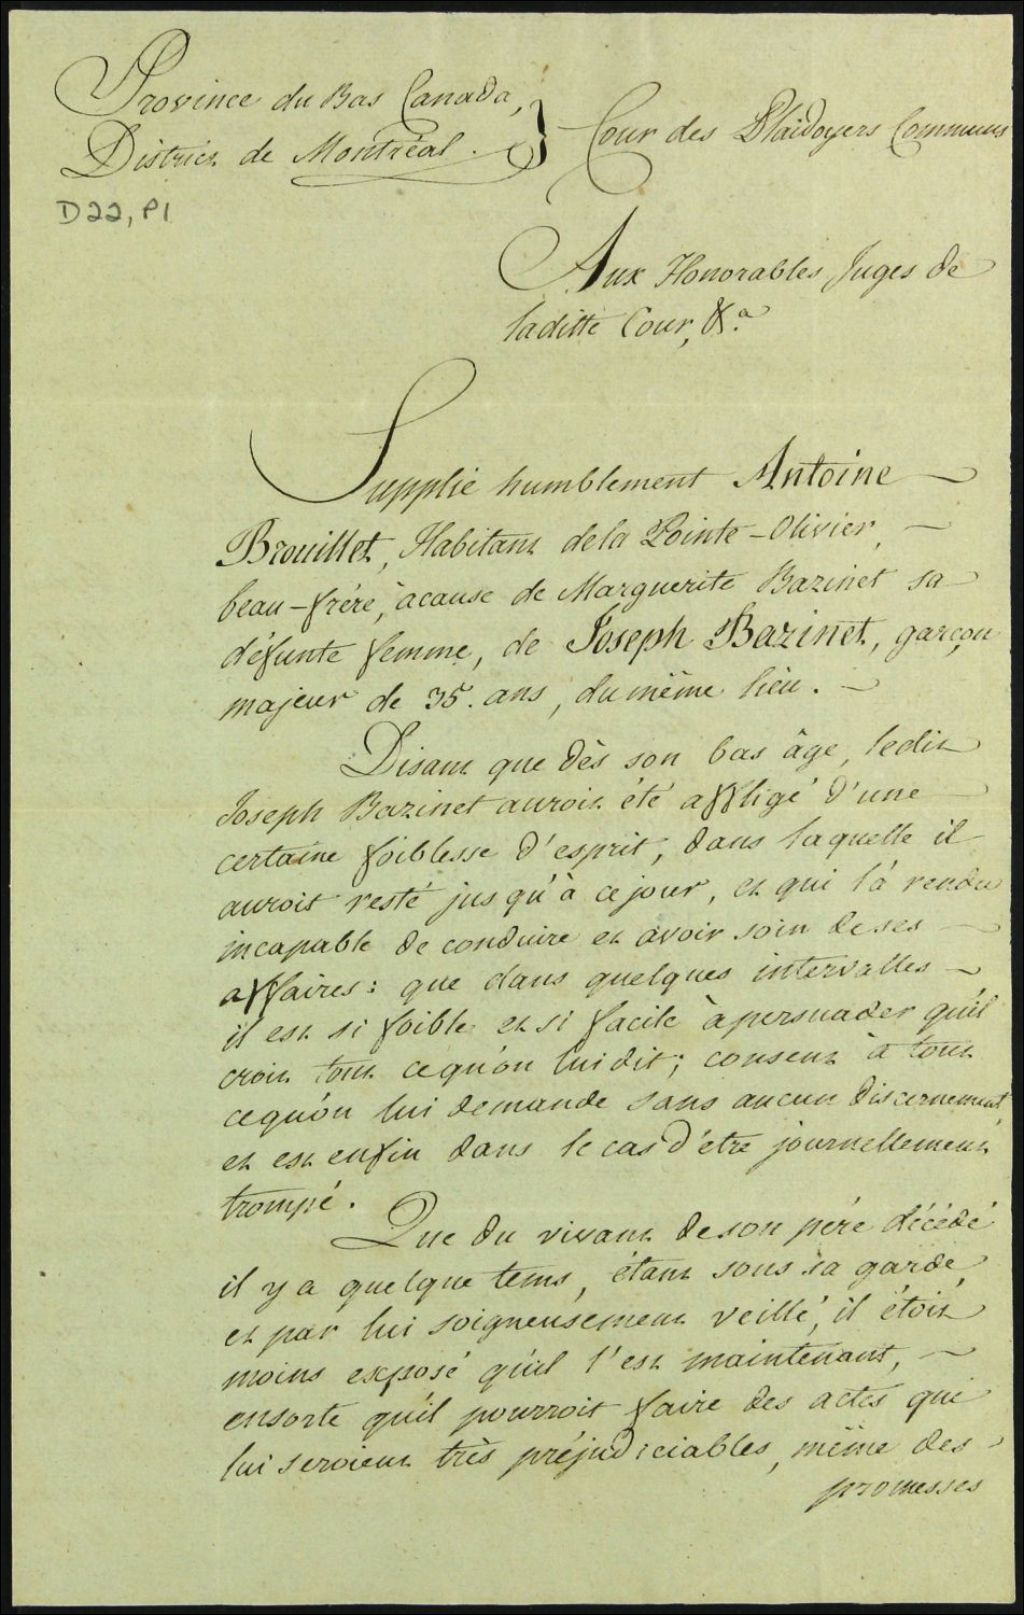 Province du Bas Canada, } Cour des Plaidoyers Communs
District de Montréal.
D22, P1
Aux Honorables Juges de
laditte Cour, &.a
Supplie humblement Antoine
Brouillet, Habitant dela Pointe-Olivier,
beau-frére, àcause de Marguerite Bazinet sa
défunte femme, de Joseph Bazinet, garçon
majeur de 35. ans, du même lieu.
Disant que dès son bas âge, ledit
Joseph Bazinet auroit été affligé d'une
certaine foiblesse d'esprit, dans laquelle il
auroit resté jusqu'à cejour, et qui l'à rendu
incapable de conduire et avoir soin de ses
affaires: que dans quelques intervalles
il est si foible et si facile àpersuader qu'il
croit tout cequ'on lui dit; consent à tout
cequ'on lui demande sans aucun discernement,
et est enfin dans le cas d'etre journellement
trompé.
Que du vivant deson pére décédé
il y a quelque tems, étant sous sa garde,
et par lui soigneusement veillé, il étoit
moins exposé qu'il l'est maintenant,
ensorte qu'il pourroit faire des actes qui
lui seroient très préjudiciables, même des
promesses